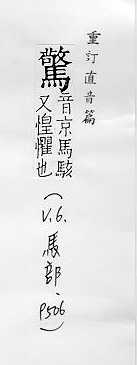 重訂直音篇
驚音京馬駭
又惶懼也
(V.6.馬部.P506)